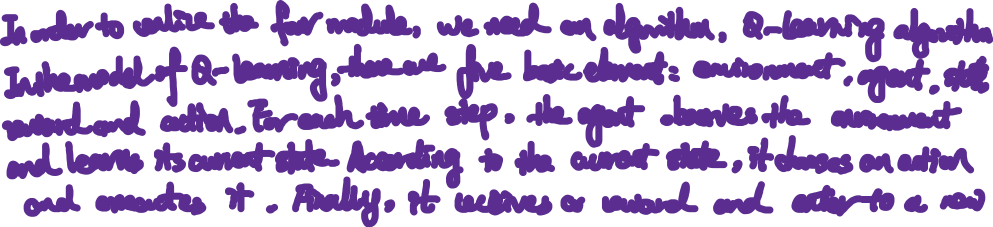 In order to realize the four module, we need an algorithm, Q-learning algorithm
In the model of Q-learning, there are five basic element: environment, agent, state
reward and action. For each time step, the agent observes the environment
and learns its current state According to the current state, it chooses an action
and executes it. Finally, it receives a reward and enter to a new